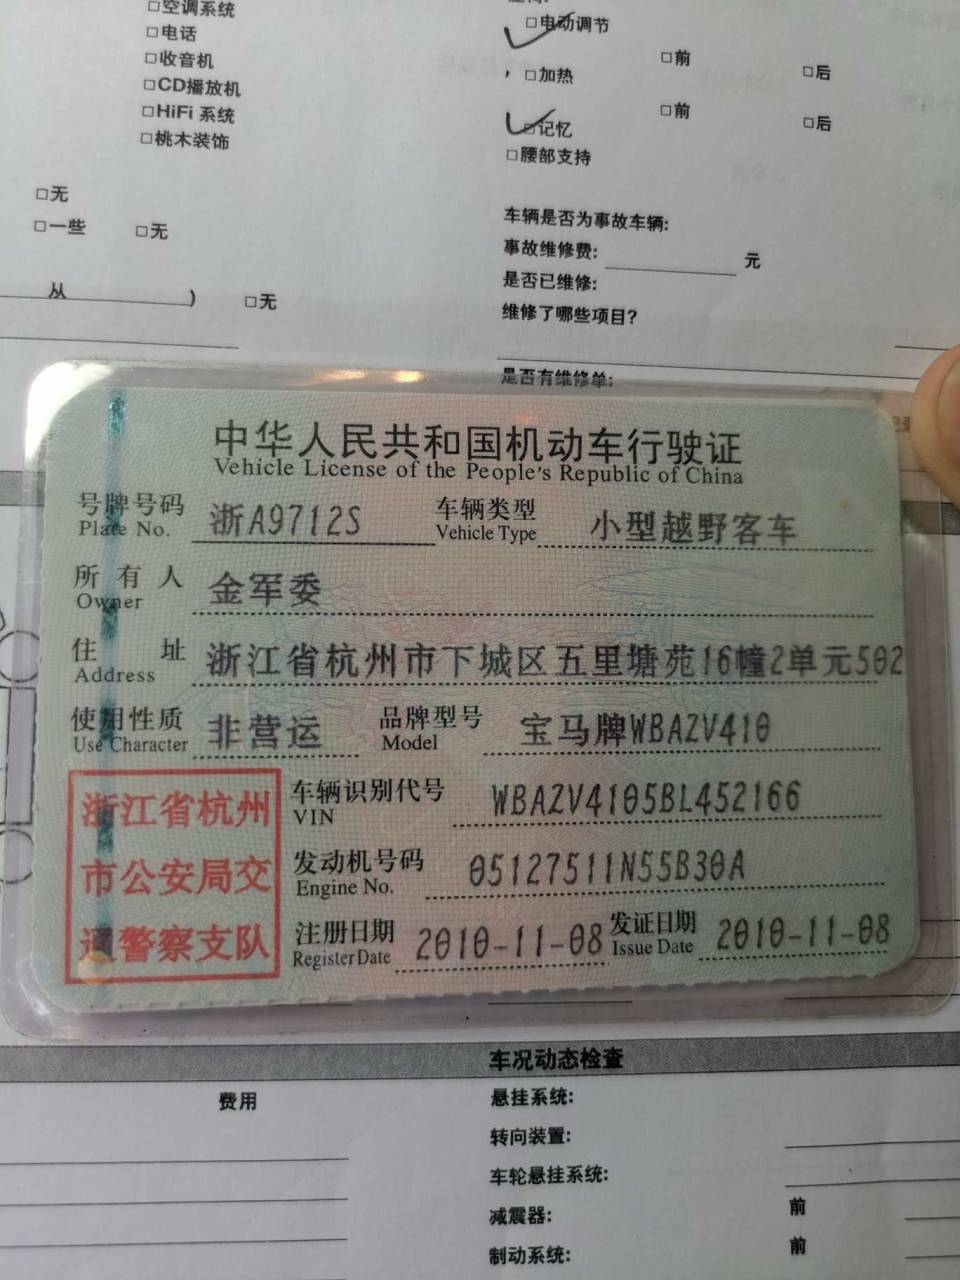 □空调系统
□电话
□收音机
□CD播放机
□HiFi 系统
□桃木装饰
□电动调节
□加热 □前 □后
□记忆 □前 □后
□腰部支持
□无
□一些 □无
从 ) □无
车辆是否为事故车辆:
事故维修费: 元
是否已维修:
维修了哪些项目?
是否有维修单:
中华人民共和国机动车行驶证
Vehicle License of the People's Republic of China
号牌号码 浙A9712S 车辆类型 小型越野客车
Plate No. Vehicle Type
所有人 金军委
Owner
住址 浙江省杭州市下城区五里塘苑16幢2单元502
Address
使用性质 非营运 品牌型号 宝马牌WBAZV410
Use Character Model
浙江省杭州
市公安局交
通警察支队
车辆识别代号 WBAZV4105BL452166
VIN
发动机号码 05127511N55B30A
Engine No.
注册日期 2010-11-08 发证日期 2010-11-08
Register Date Issue Date
车况动态检查
费用
悬挂系统:
转向装置:
车轮悬挂系统:
减震器: 前
制动系统: 前